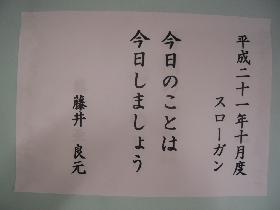 平成二十一年十月度
スローガン
今日のことは
今日しましょう
藤井 良元